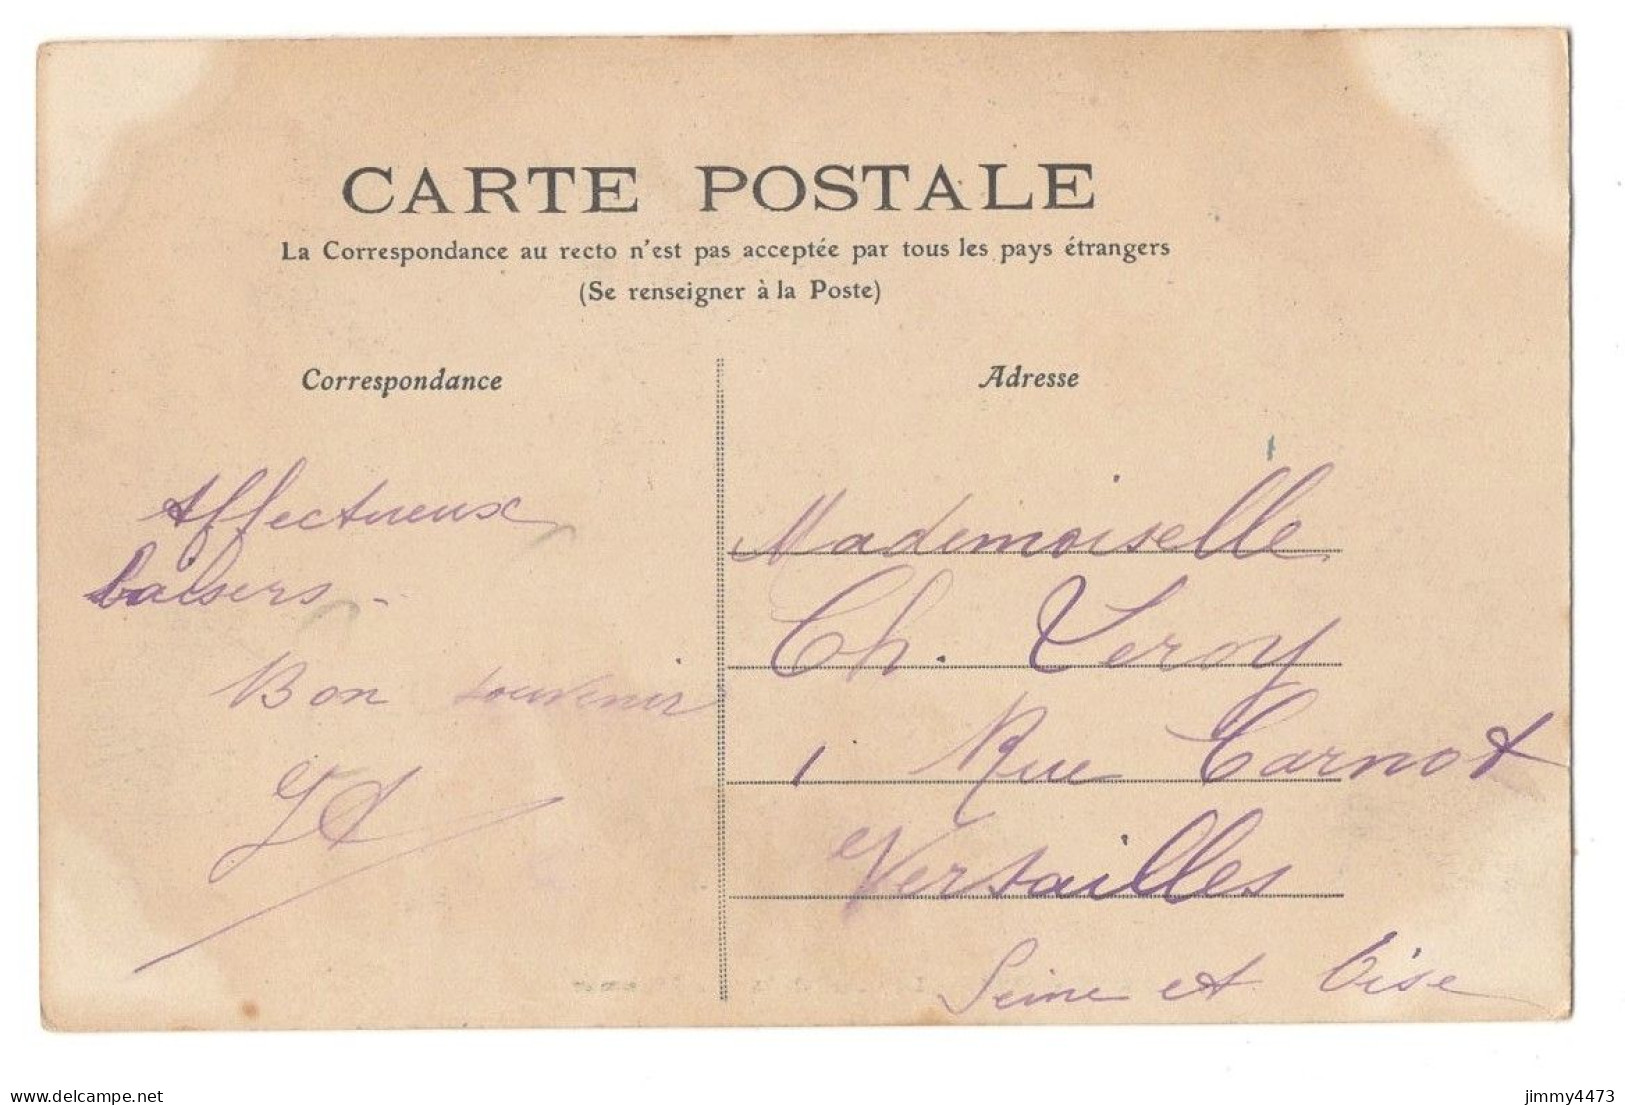 CARTE POSTALE
La Correspondance au recto n'est pas acceptée par tous les pays étrangers
(Se renseigner à la Poste)
Correspondance
Affectueux
baisers -
Bon souvenir
Adresse
Mademoiselle
Ch. Leroy
1 Rue Carnot
Versailles
Seine et Oise
delcampe.net
jimmy4473